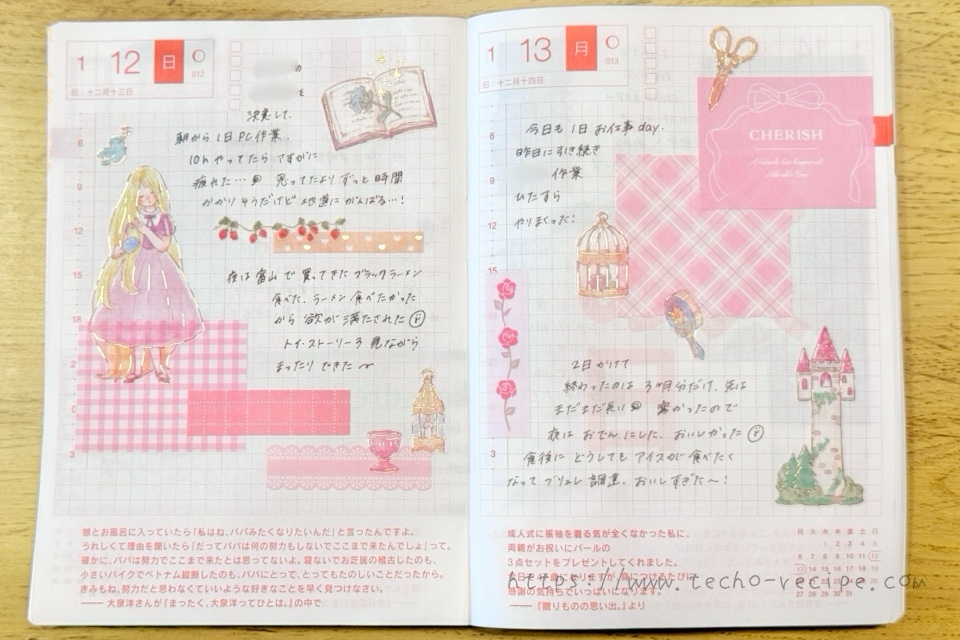 1 12 日
012
旧：十二月十三日
の
を
決意して、
朝から1日PC作業。
10hやってたらさすがに
疲れた… 思ってたよりずっと時間
かかりそうだけど地道にがんばる…！
夜は富山で買ってきたブラックラーメン
食べた。ラーメン食べたかった
から欲が満たされた
トイ・ストーリー3見ながら
まったりできた〜
6
9
12
15
18
娘とお風呂に入っていたら「私はね、パパみたくなりたいんだ」と言ったんですよ。
うれしくて理由を聞いたら「だってパパは何の努力もしないでここまで来たんでしょ」って。
確かに、パパは努力でここまで来たとは思ってないよ。寝ないでお芝居の稽古したのも、
小さいバイクでベトナム縦断したのも、パパにとって、とってもたのしいことだったから。
きみもね、努力だと思わなくていいような好きなことを早く見つけなさい。
── 大泉洋さんが『まったく、大泉洋ってひとは。』の中で
1 13 月
013
旧：十二月十四日
CHERISH
今日も1日お仕事day.
昨日に引き続き
作業
ひたすら
やりまくった！
2日かけて
終わったのは3ヶ月分だけ。先は
まだまだ長い 寒かったので
夜はおでんにした。おいしかった
食後にどうしてもアイスが食べたく
なってブリュレ調達。おいしすぎた〜！
6
9
12
15
成人式に振袖を着る気が全くなかった私に、
両親がお祝いにパールの
3点セットをプレゼントしてくれました。
感謝の気持ちでいっぱいになります。
── 『贈りものの思い出。』より
月 火 水 木 金 土 日
1 2 3 4 5
6 7 8 9 10 11 12
13 14 15 16 17 18 19
20 21 22 23 24 25 26
27 28 29 30 31
https://www.techo-recipe.com